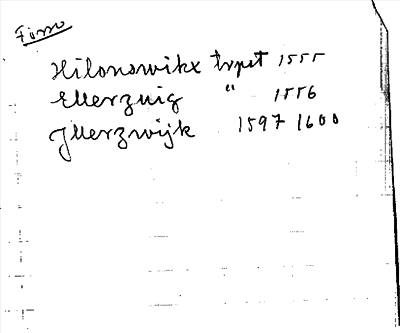 Hilonowikx trpet 1555
Ellerzuig " 1556
Jllerzwijk 1597 1600